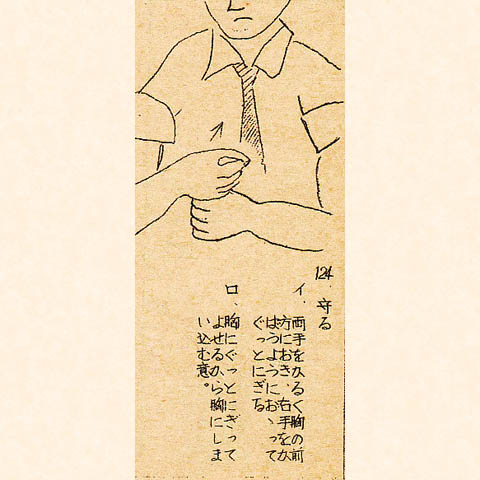 124. 守る
イ. 両手をかるく胸の前
方におき、右手をか
ばうようにおゝって
ぐっとにぎる
ロ、胸にぐっとにぎって
よせるから胸にしま
い込む意。